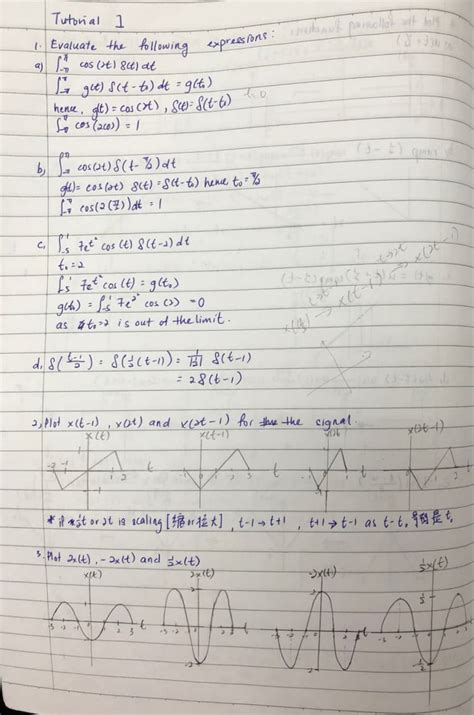 Tutorial 1
1. Evaluate the following expressions:
a) ∫_{-π}^{π} cos(2t) δ(t) dt
∫_{-π}^{π} g(t) δ(t-t₀) dt = g(t₀)
hence, g(t) = cos(2t), δ(t) = δ(t-t₀)
∫_{-π}^{π} cos(2(0)) = 1
b) ∫_{-π}^{π} cos(2t) δ(t-π/2) dt
g(t) = cos(2t) δ(t) = δ(t-t₀) hence t₀ = π/2
∫_{-π}^{π} cos(2(π/2)) dt = 1
c, ∫_{-5}^{1} 7e^{t²} cos(t) δ(t-2) dt
t₀ = 2
∫_{-5}^{1} 7e^{t²} cos(t) = g(t₀)
g(t₀) = ∫_{-5}^{1} 7e^{2²} cos(2) = 0
as t₀=2 is out of the limit.
d, δ((t-1)/2) = δ(½(t-1)) = 1/|½| δ(t-1)
= 2δ(t-1)
2, Plot x(t-1), x(2t) and x(2t-1) for the signal.
x(t) x(t-1) x(2t) x(2t-1)
* if ½t or 2t is scaling [缩 or 拉大], t-1 → t+1, t+1 → t-1 as t-t₀
3. Plot 2x(t), -2x(t) and ½x(t)
x(t) 2x(t) -2x(t) ½x(t)